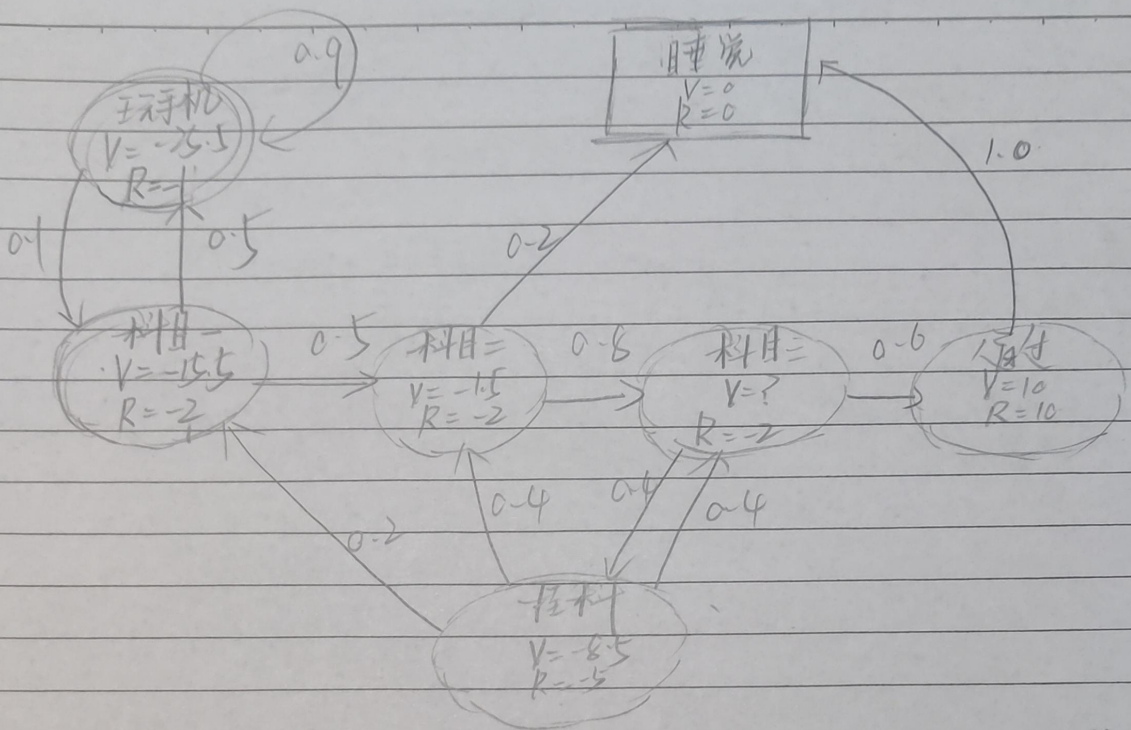 0.9
玩手机
V=-25.5
R=-1
睡觉
V=0
R=0
1.0
0.1
0.5
0.2
科目一
V=-15.5
R=-2
0.5
科目二
V=-1.5
R=-2
0.8
科目三
V=?
R=-2
0.6
V=10
R=10
0.2
0.4
0.4
0.4
挂科
V=-8.5
R=-5